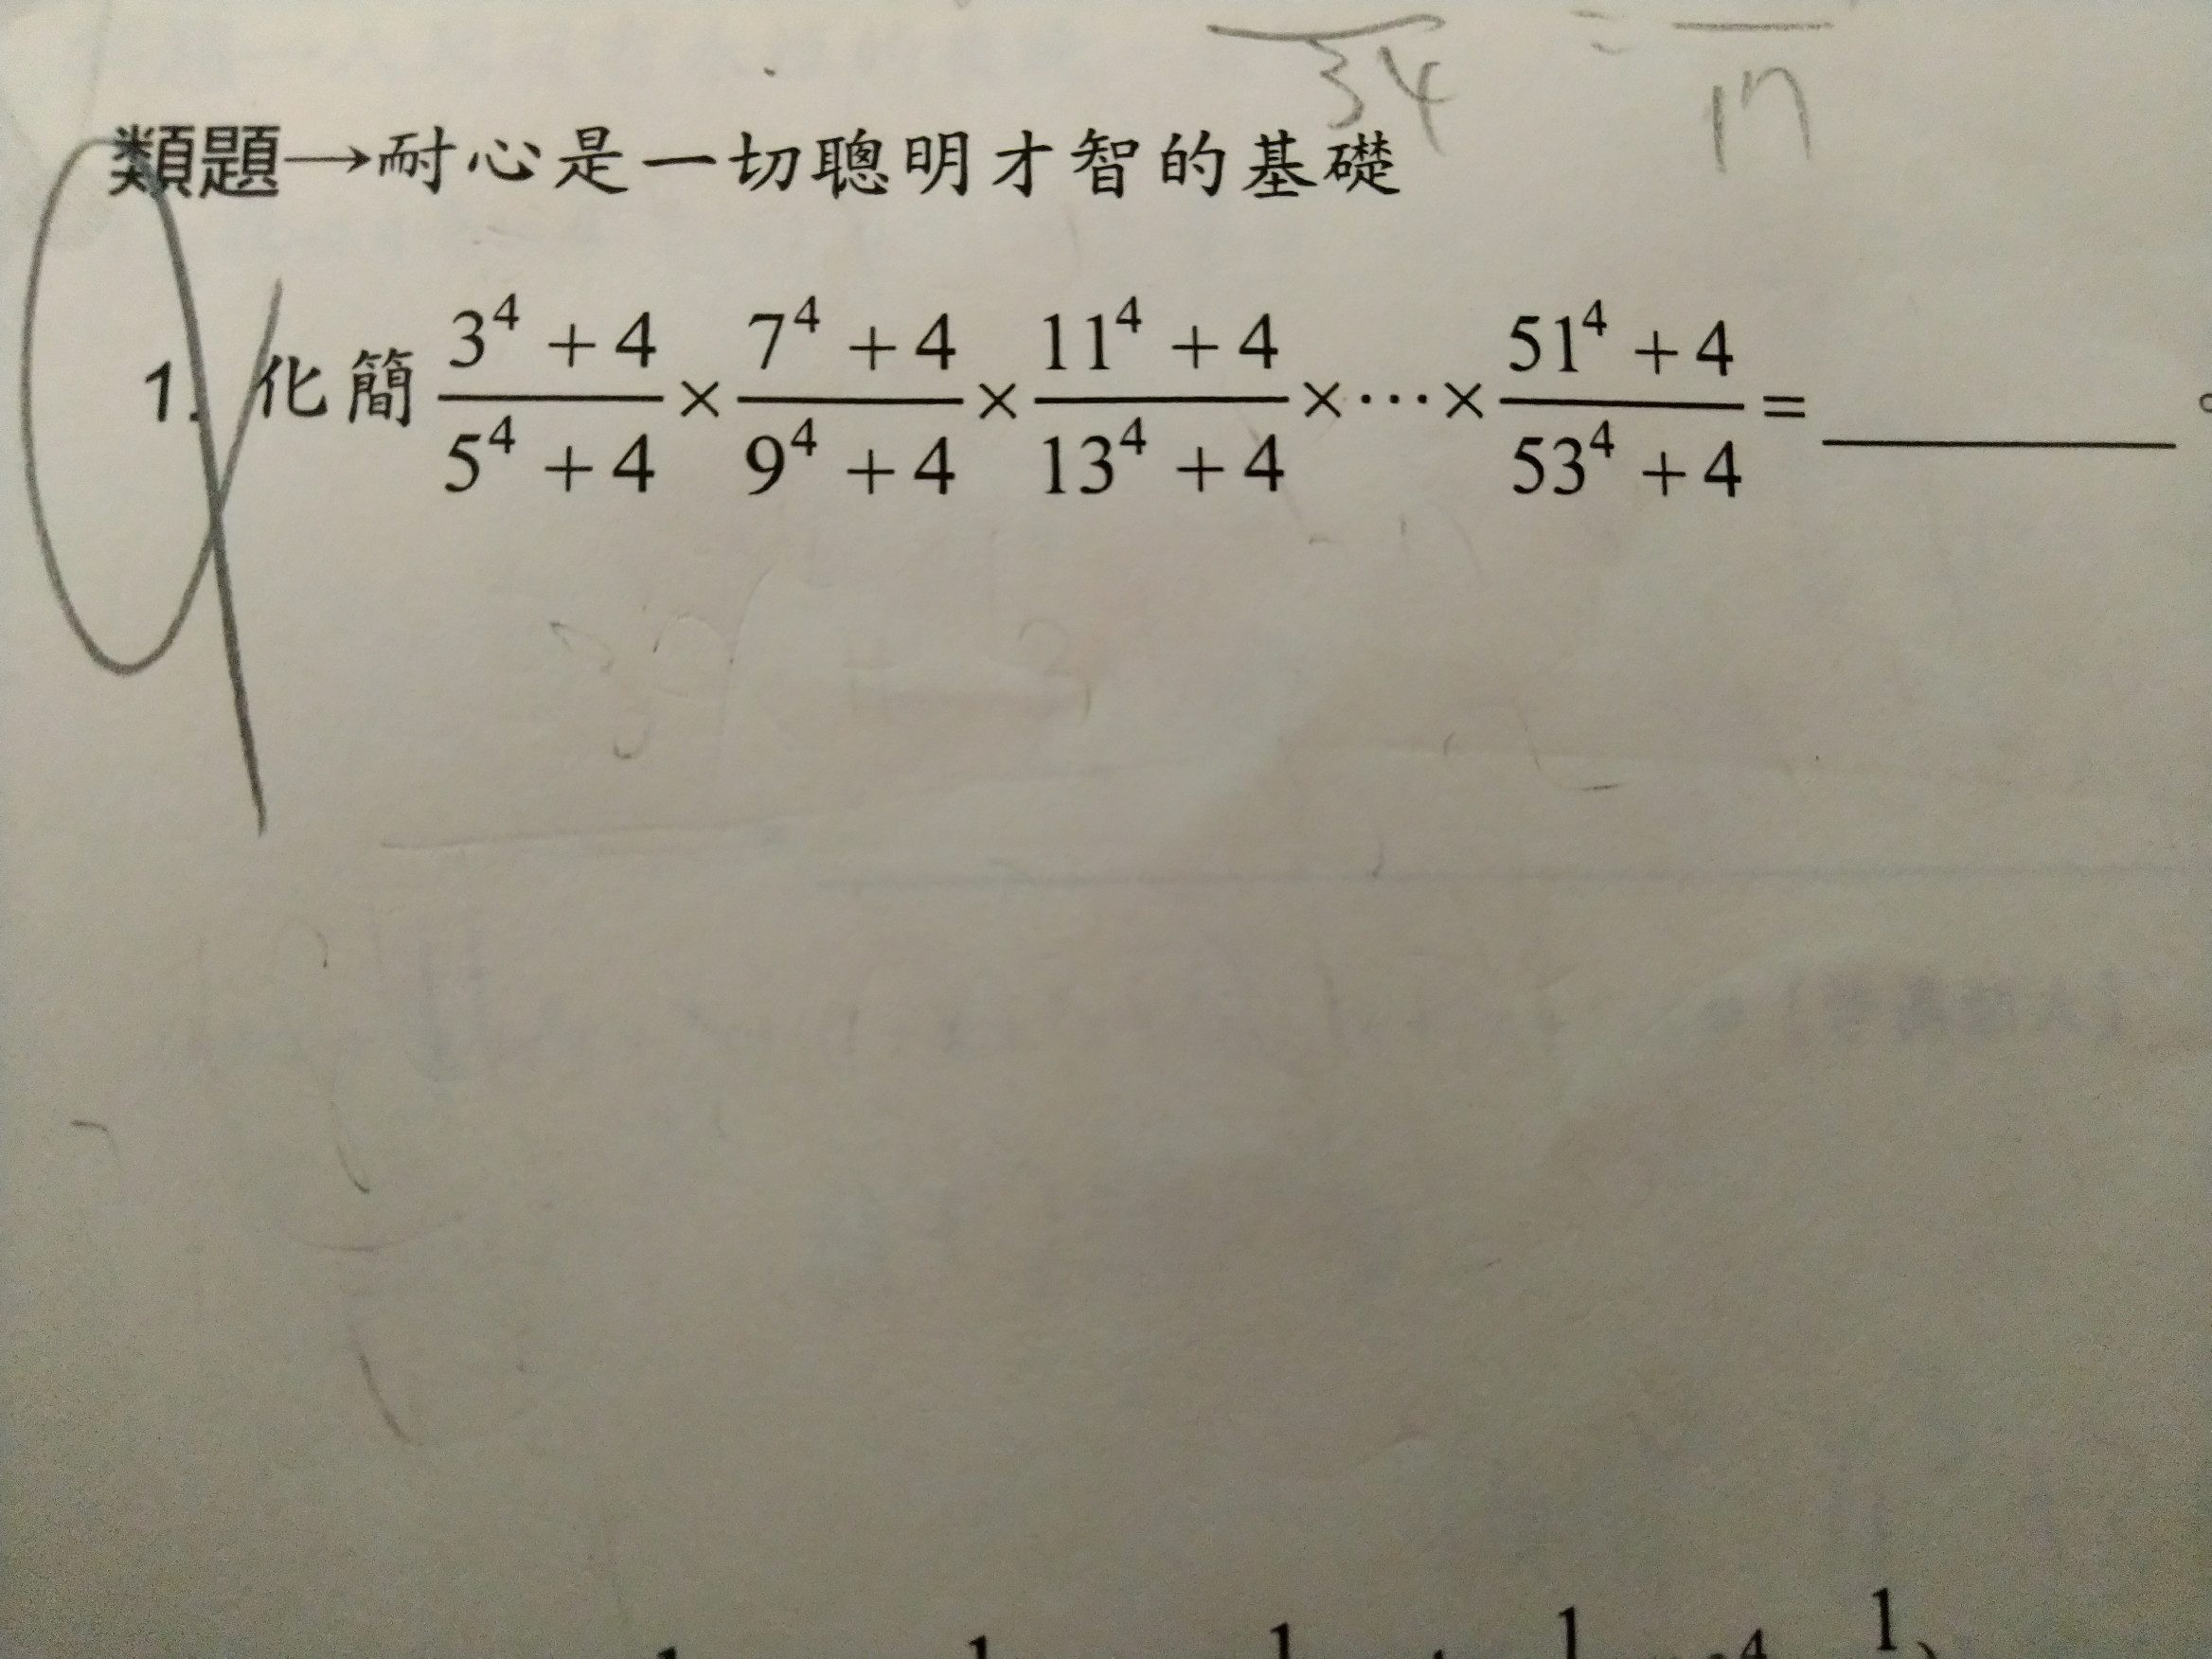 34 = 17
類題→耐心是一切聰明才智的基礎
1. 化簡 \frac{3^4+4}{5^4+4}×\frac{7^4+4}{9^4+4}×\frac{11^4+4}{13^4+4}×⋯×\frac{51^4+4}{53^4+4}=______。